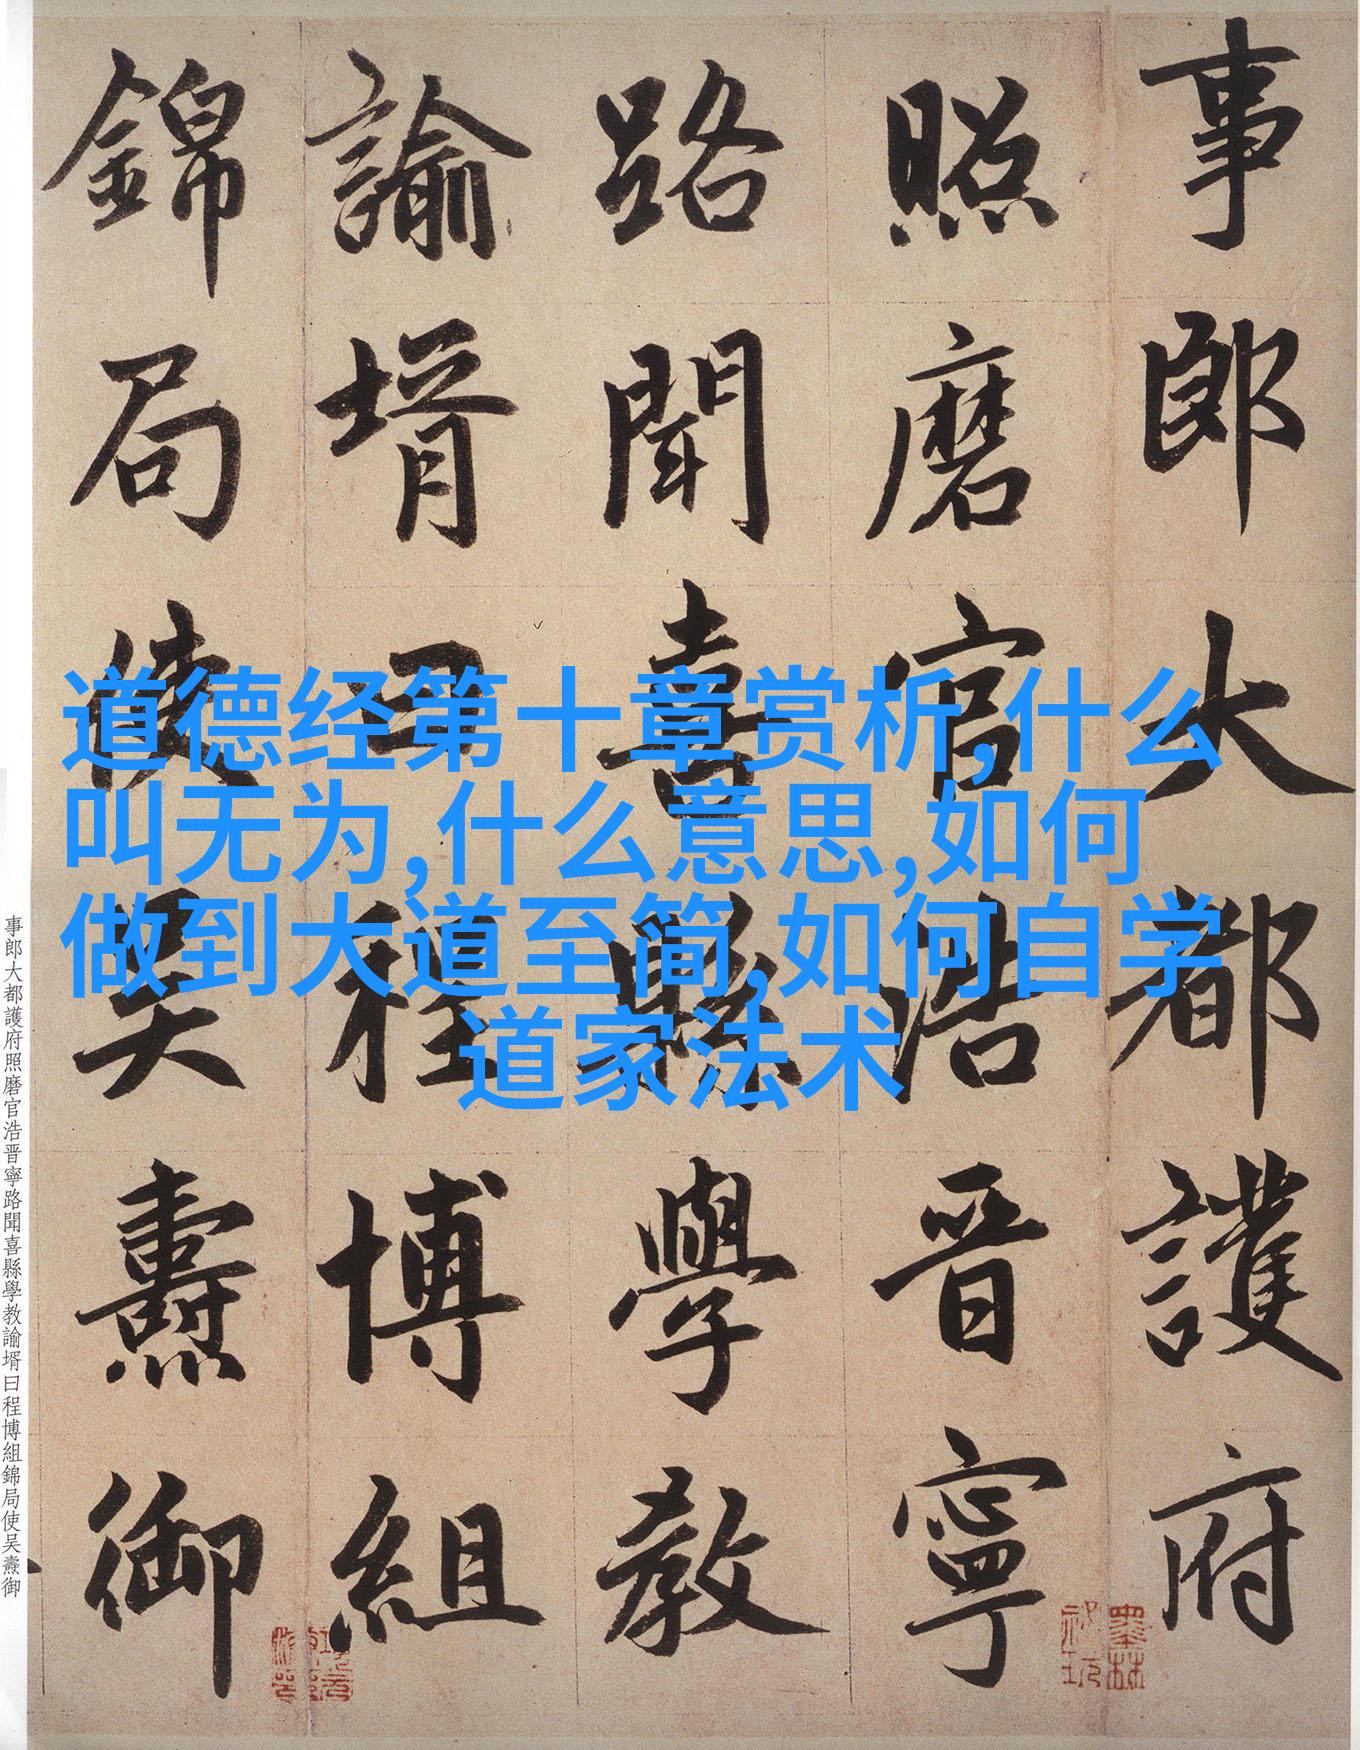 事郎大都護府
照磨官浩晉寧
路聞喜縣學教
諭壻曰程博組
錦局使吴燾御
道德经第十章赏析,什么
叫无为,什么意思,如何
做到大道至简,如何自学
道家法术
事郎大都護府照磨官浩晋寧路聞喜縣學教諭壻曰程博組錦局使吴燾御